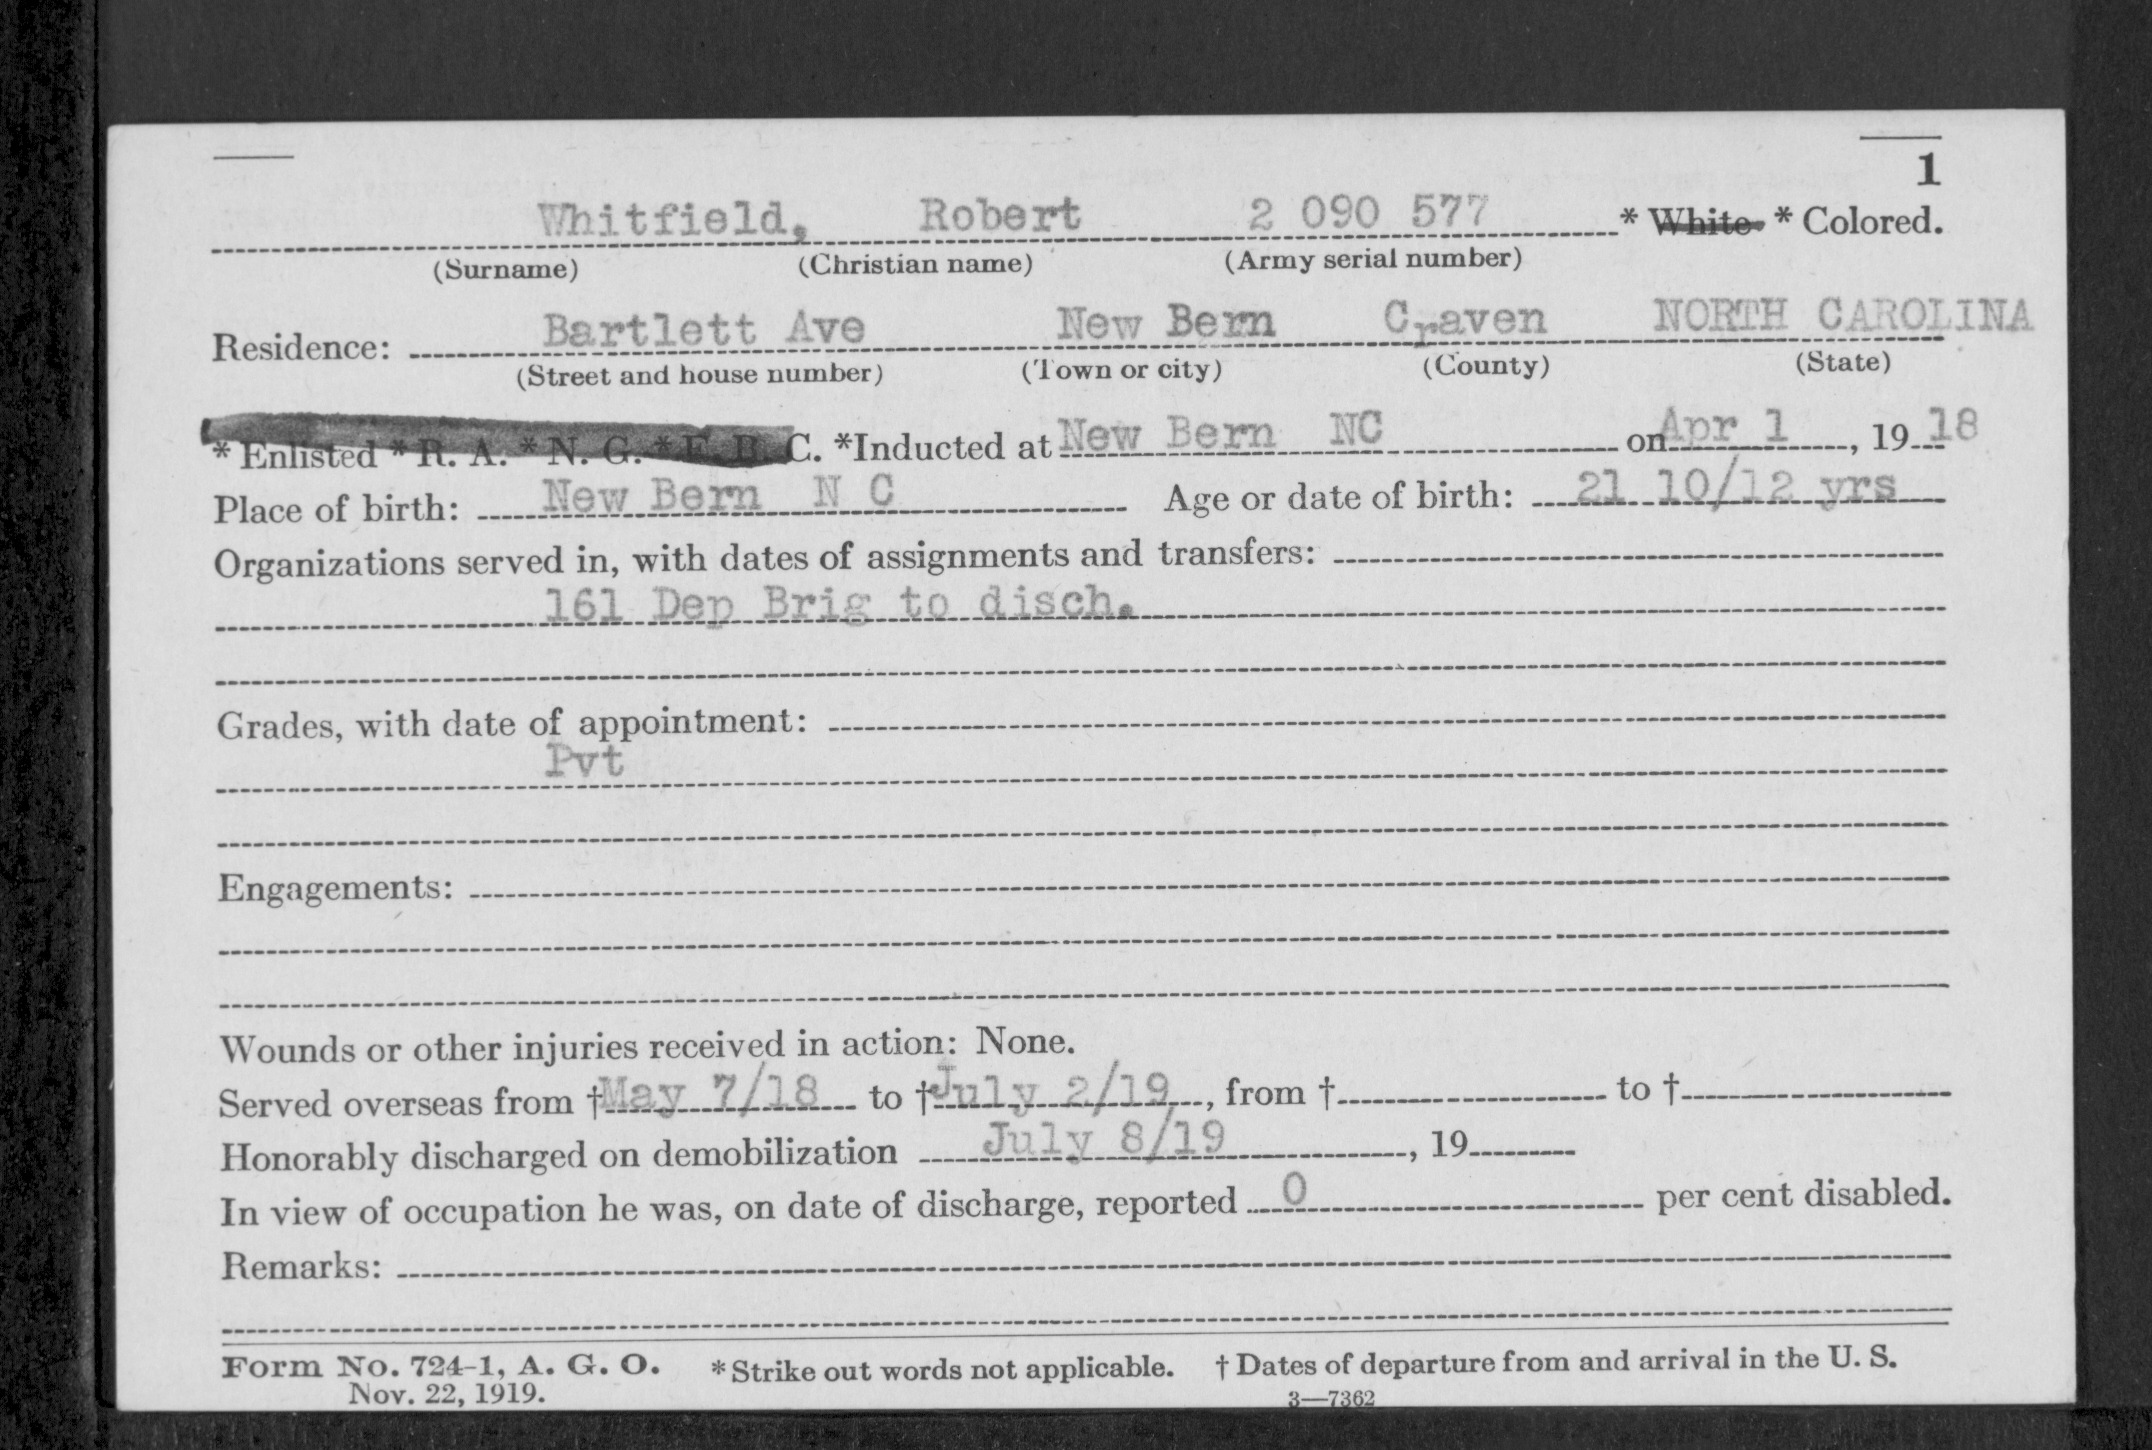 1
Whitfield, Robert 2 090 577 * White * Colored.
(Surname) (Christian name) (Army serial number)
Residence: Bartlett Ave New Bern Craven NORTH CAROLINA
(Street and house number) (Town or city) (County) (State)
* Enlisted * R. A. * N. G. * E. R. C. *Inducted at New Bern NC on Apr 1, 19 18
Place of birth: New Bern N C Age or date of birth: 21 10/12 yrs
Organizations served in, with dates of assignments and transfers:
161 Dep Brig to disch.
Grades, with date of appointment:
Pvt
Engagements:
Wounds or other injuries received in action: None.
Served overseas from † May 7/18 to † July 2/19, from † to †
Honorably discharged on demobilization July 8/19, 19
In view of occupation he was, on date of discharge, reported 0 per cent disabled.
Remarks:
Form No. 724-1, A. G. O. * Strike out words not applicable. † Dates of departure from and arrival in the U. S.
Nov. 22, 1919. 3—7362